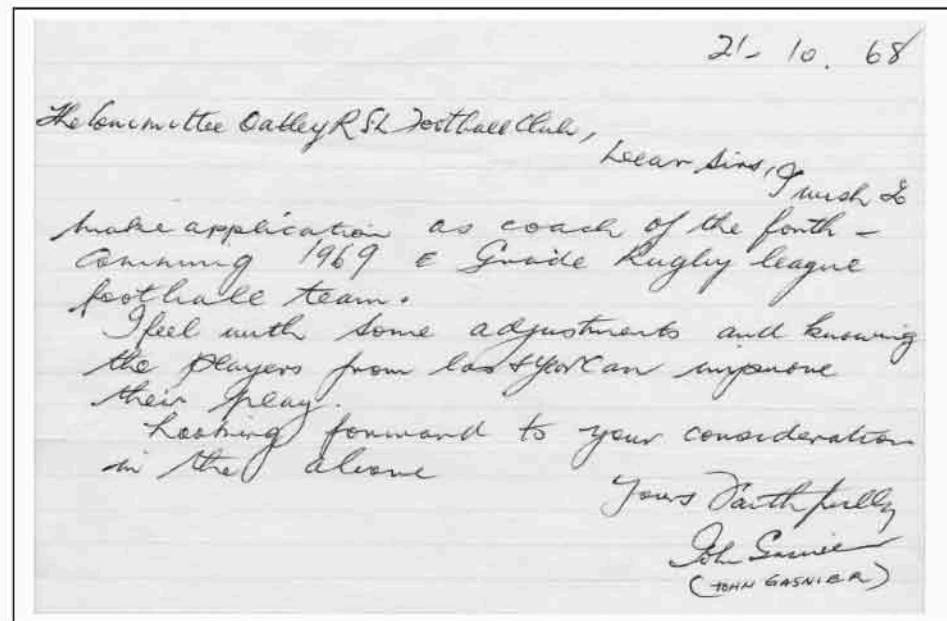 21- 10. 68
The Committee Oatley R SL Football Club,
Dear Sirs, I wish to
make application as coach of the forth -
comming 1969 E Grade Rugby league
football team.
I feel with some adjustments and knowing
the players from last year can improve
their play.
Looking forward to your consideration
in the above
Yours Faithfully
John Gasnier
(JOHN GASNIER)